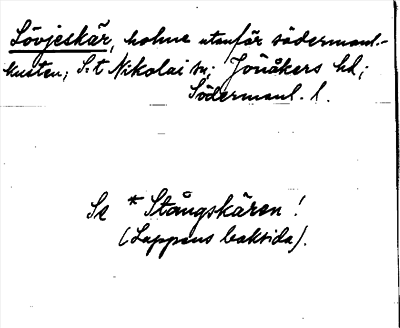 Lövjeskär, holme utanför södermanl.-
kusten; S:t Nikolai sn; Jönåkers hd;
Södermanl. l.
Se *Stångskären!
(Lappens baksida).